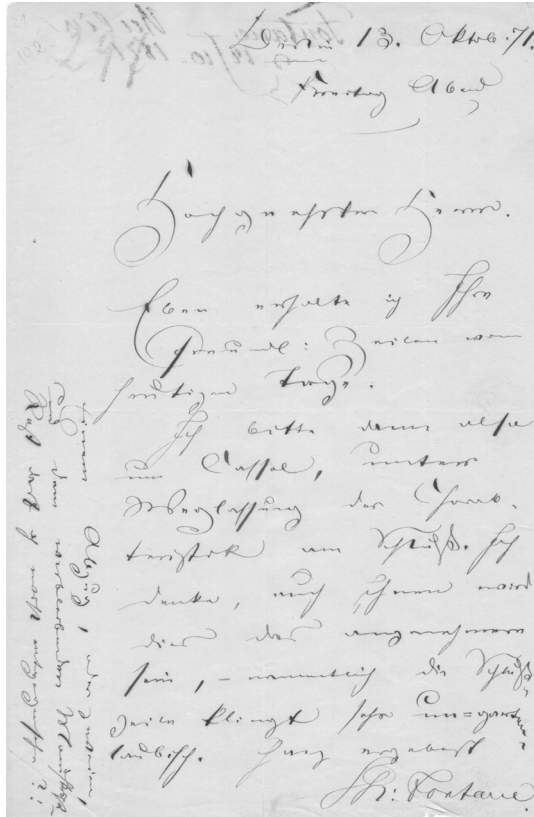 Berlin 13. Oktob. 71.
Freitag Abend
Hochgeehrter Herr.
Eben erhalte ich Ihre
freundl: Zeilen vom
heutigen Tage.
Ich bitte dann also
um Cassel, unter
Weglassung der Charak-
teristik am Schluß. Ich
denke, auch Ihnen wird
dies das angenehmere
sein, – namentlich die Schluß-
zeile klingt sehr un=garten-
laubisch. Ganz ergebenst
Th: Fontane.
einem Abzug, oder zweien,
und dem
Rest darf ich wohl entgegensehn?!
Fontane
Berlin